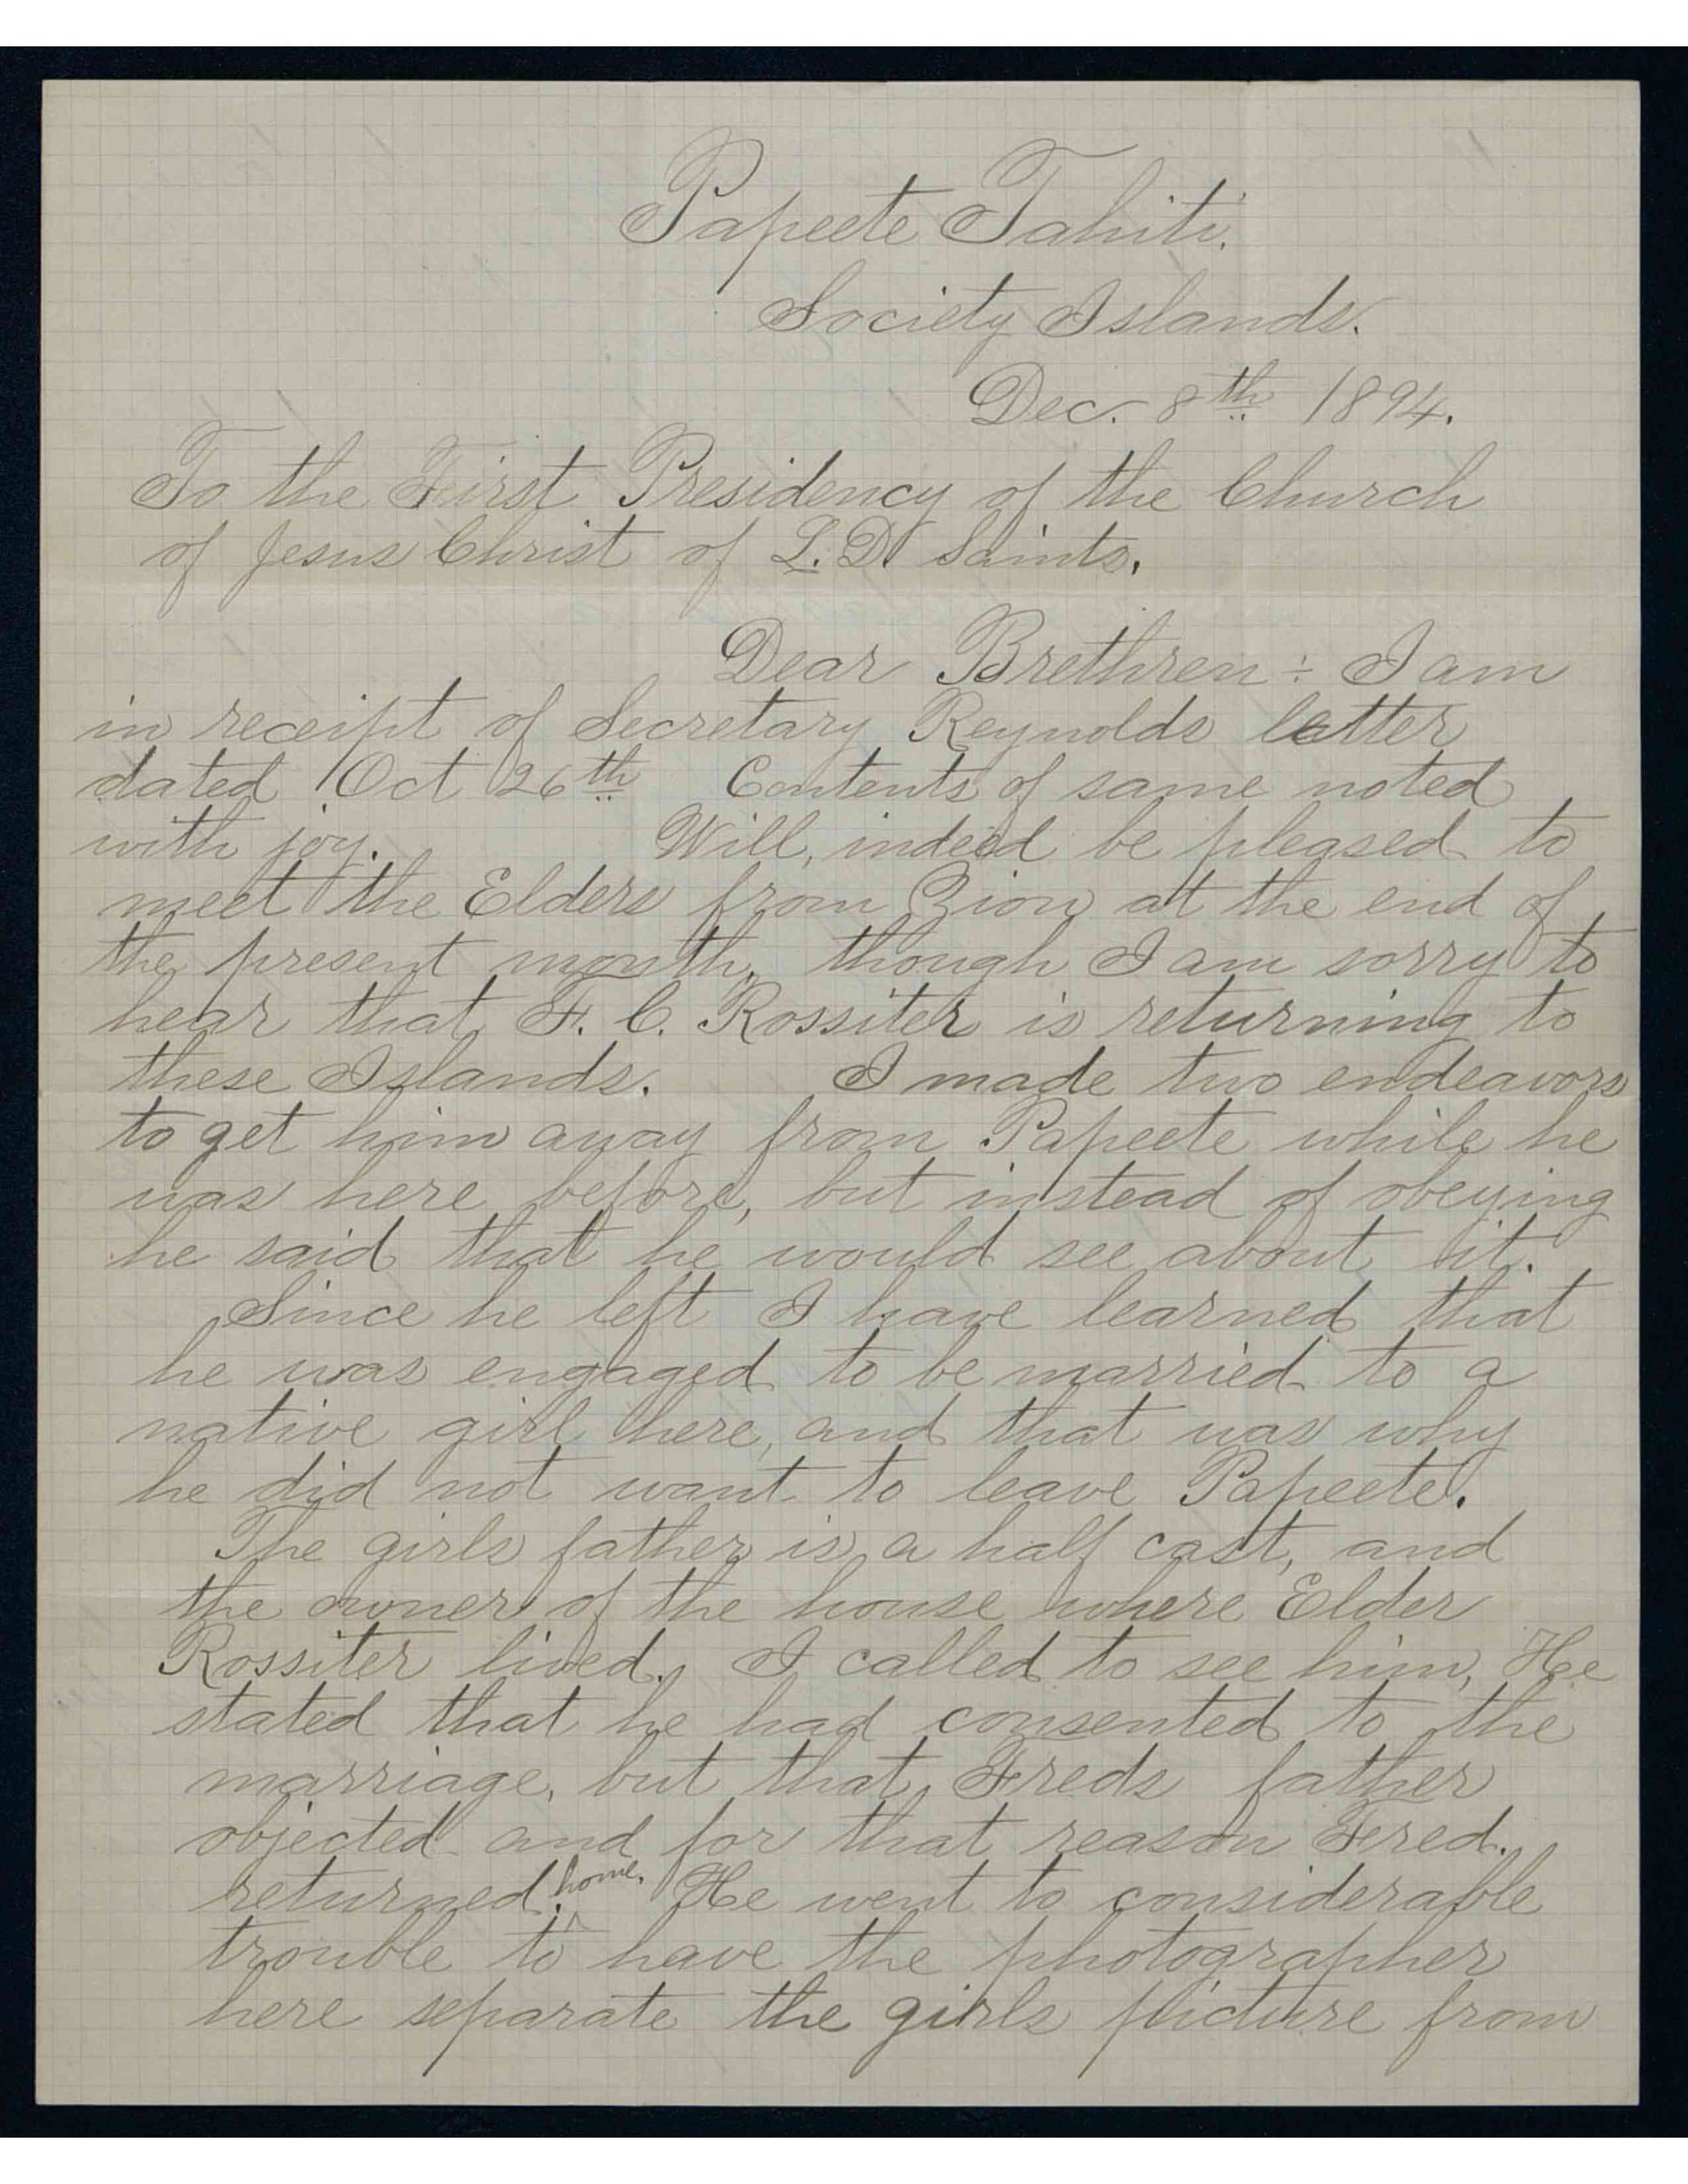 Papeete Tahiti.
Society Islands.
Dec. 8th 1894.
To the First Presidency of the Church
of Jesus Christ of L.D. Saints.
Dear Brethren:- I am
in receipt of Secretary Reynolds letter
dated Oct 26th Contents of same noted
with joy. Will, indeed be pleased to
meet the Elders from Zion at the end of
the present month, though I am sorry to
hear that F. C. Rossiter is returning to
these Islands. I made two endeavors
to get him away from Papeete while he
was here before, but instead of obeying
he said that he would see about it.
Since he left I have learned that
he was engaged to be married to a
native girl here, and that was why
he did not want to leave Papeete.
The girls father is a half cast, and
the owner of the house where Elder
Rossiter lived. I called to see him, He
stated that he had consented to the
marriage, but that Freds father
objected and for that reason Fred.
returned home. He went to considerable
trouble to have the photographer
here separate the girls picture from